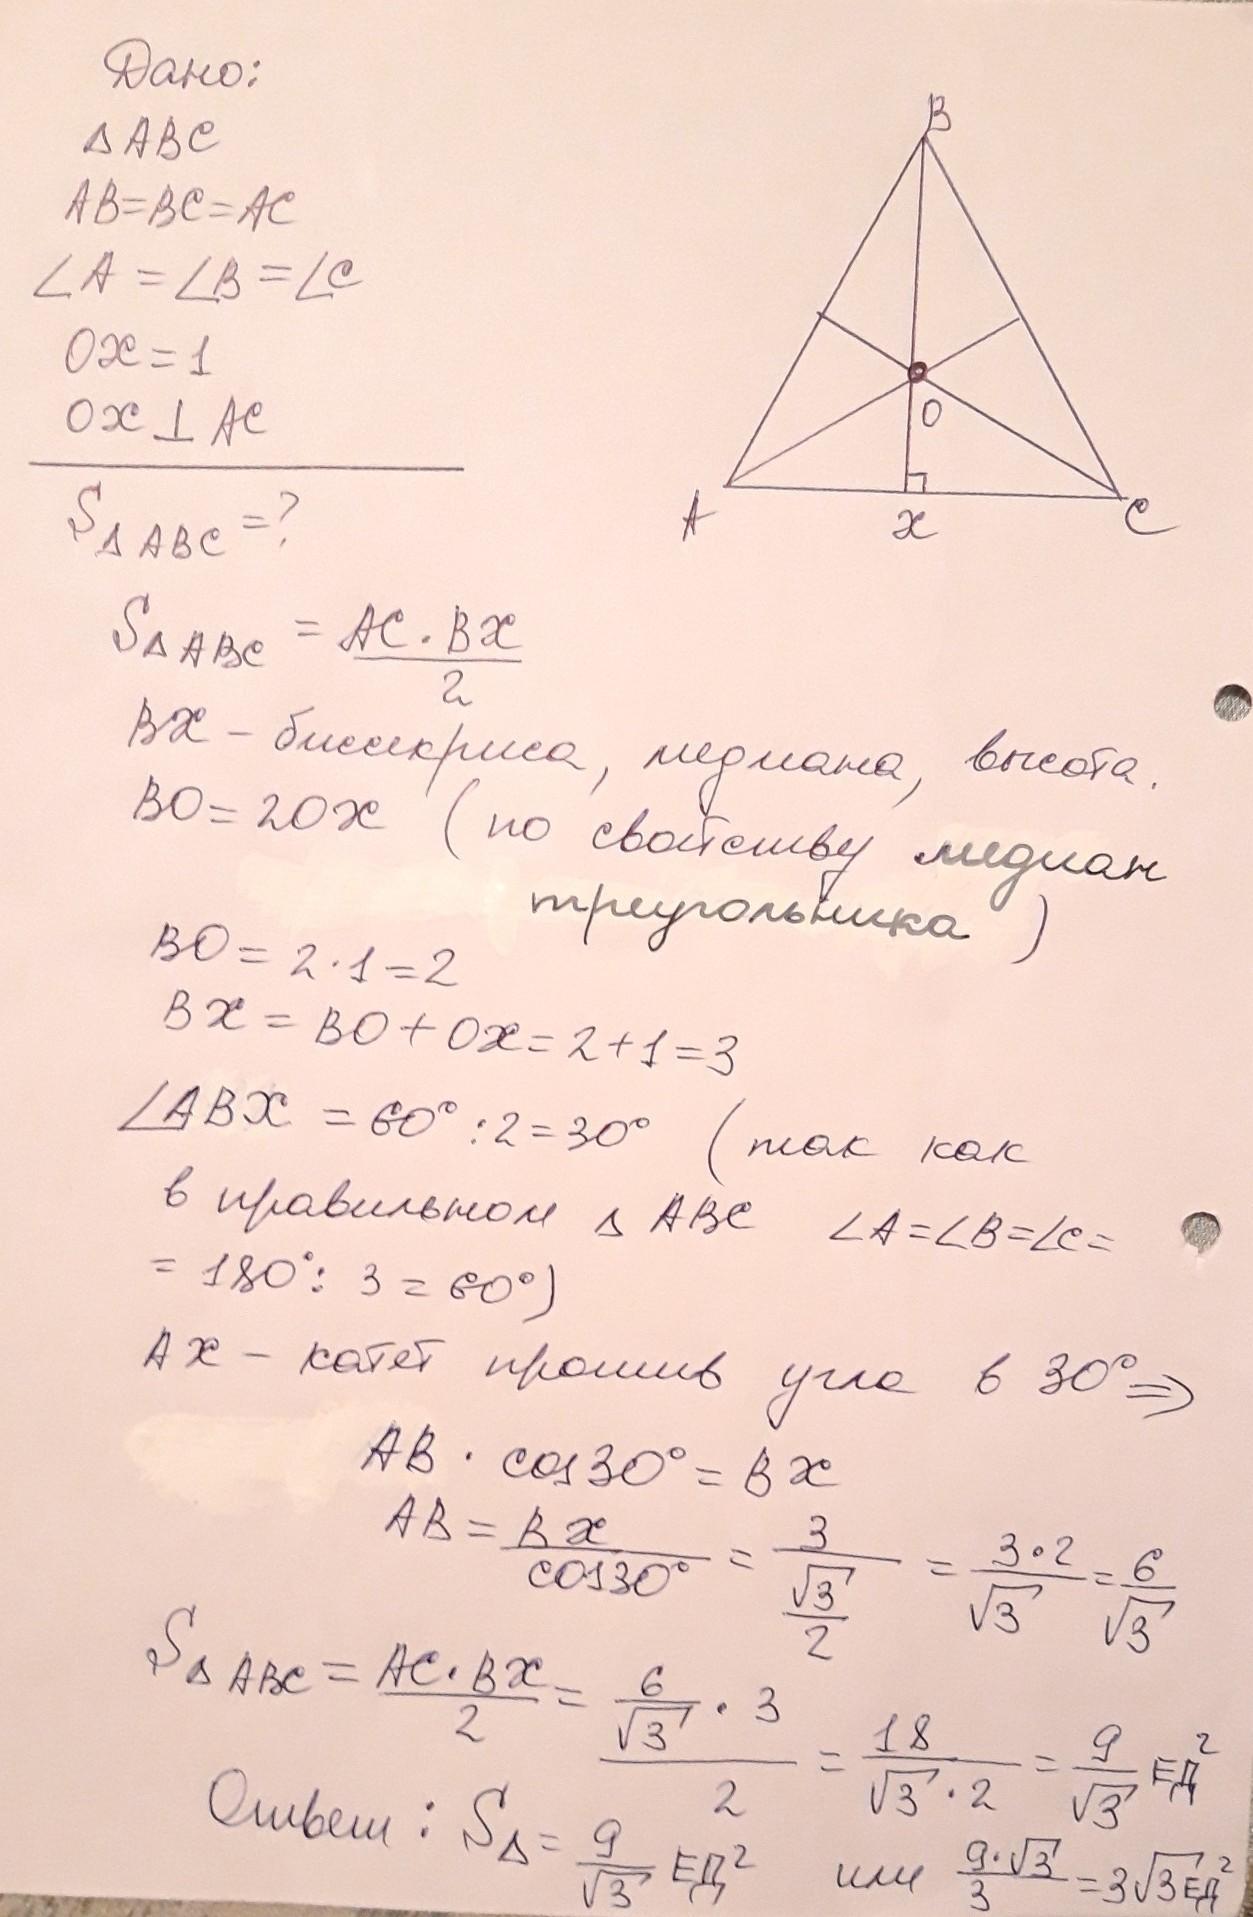 Дано:
△ABC
AB=BC=AC
∠A=∠B=∠C
OX=1
OX⊥AC
S△ABC=?
B
O
A
X
C
S△ABC = AC·BX/2
BX – биссекриса, медиана, высота.
BO=2OX (по свойству медиан
треугольника)
BO=2·1=2
BX=BO+OX=2+1=3
∠ABX=60°:2=30° (так как
в правильном △ABC ∠A=∠B=∠C=
=180°:3=60°)
AX – катет против угла в 30° ⇒
AB·cos30°=BX
AB = BX/cos30° = 3/(√3/2) = 3·2/√3 = 6/√3
S△ABC = AC·BX/2 = (6/√3·3)/2 = 18/(√3·2) = 9/√3 ЕД²
Ответ: S△ = 9/√3 ЕД² или 9·√3/3 = 3√3 ЕД²